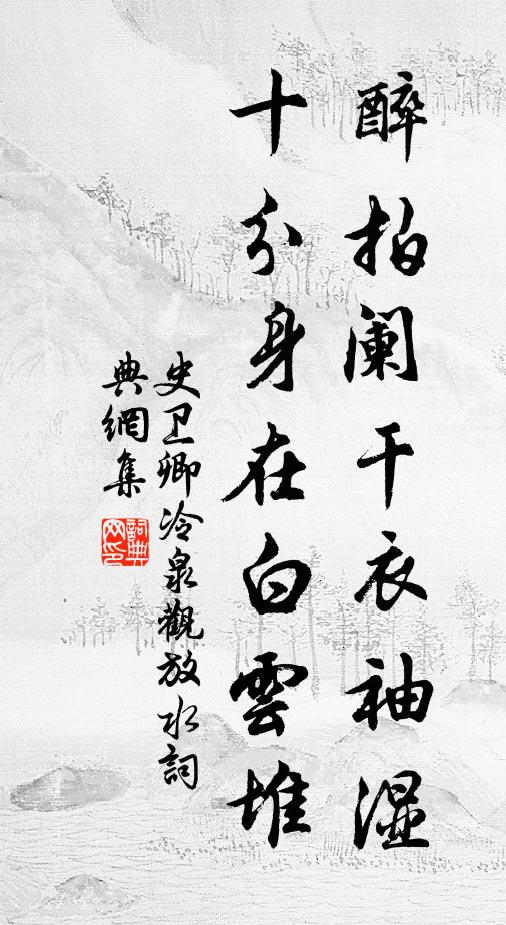 醉拍阑干衣袖湿
十分身在白雲堆
史卫卿冷泉觀放水詞
典網集
詞典网印